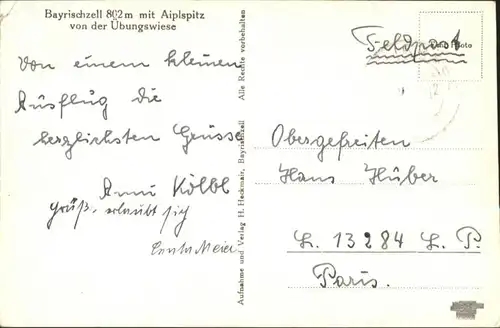 Bayrischzell 802 m mit Aiplspitz
von der Übungswiese
Von einem kleinen
Ausflug die
herzlichsten Grüsse
Anni Kölbl
Gruß. erlaubt sich
Centa Meier
Aufnahme und Verlag H. Heckmair, Bayrischzell Alle Rechte vorbehalten
Feldpost
Obergefreiten
Hans Huber
L. 13284 L. P.
Paris.